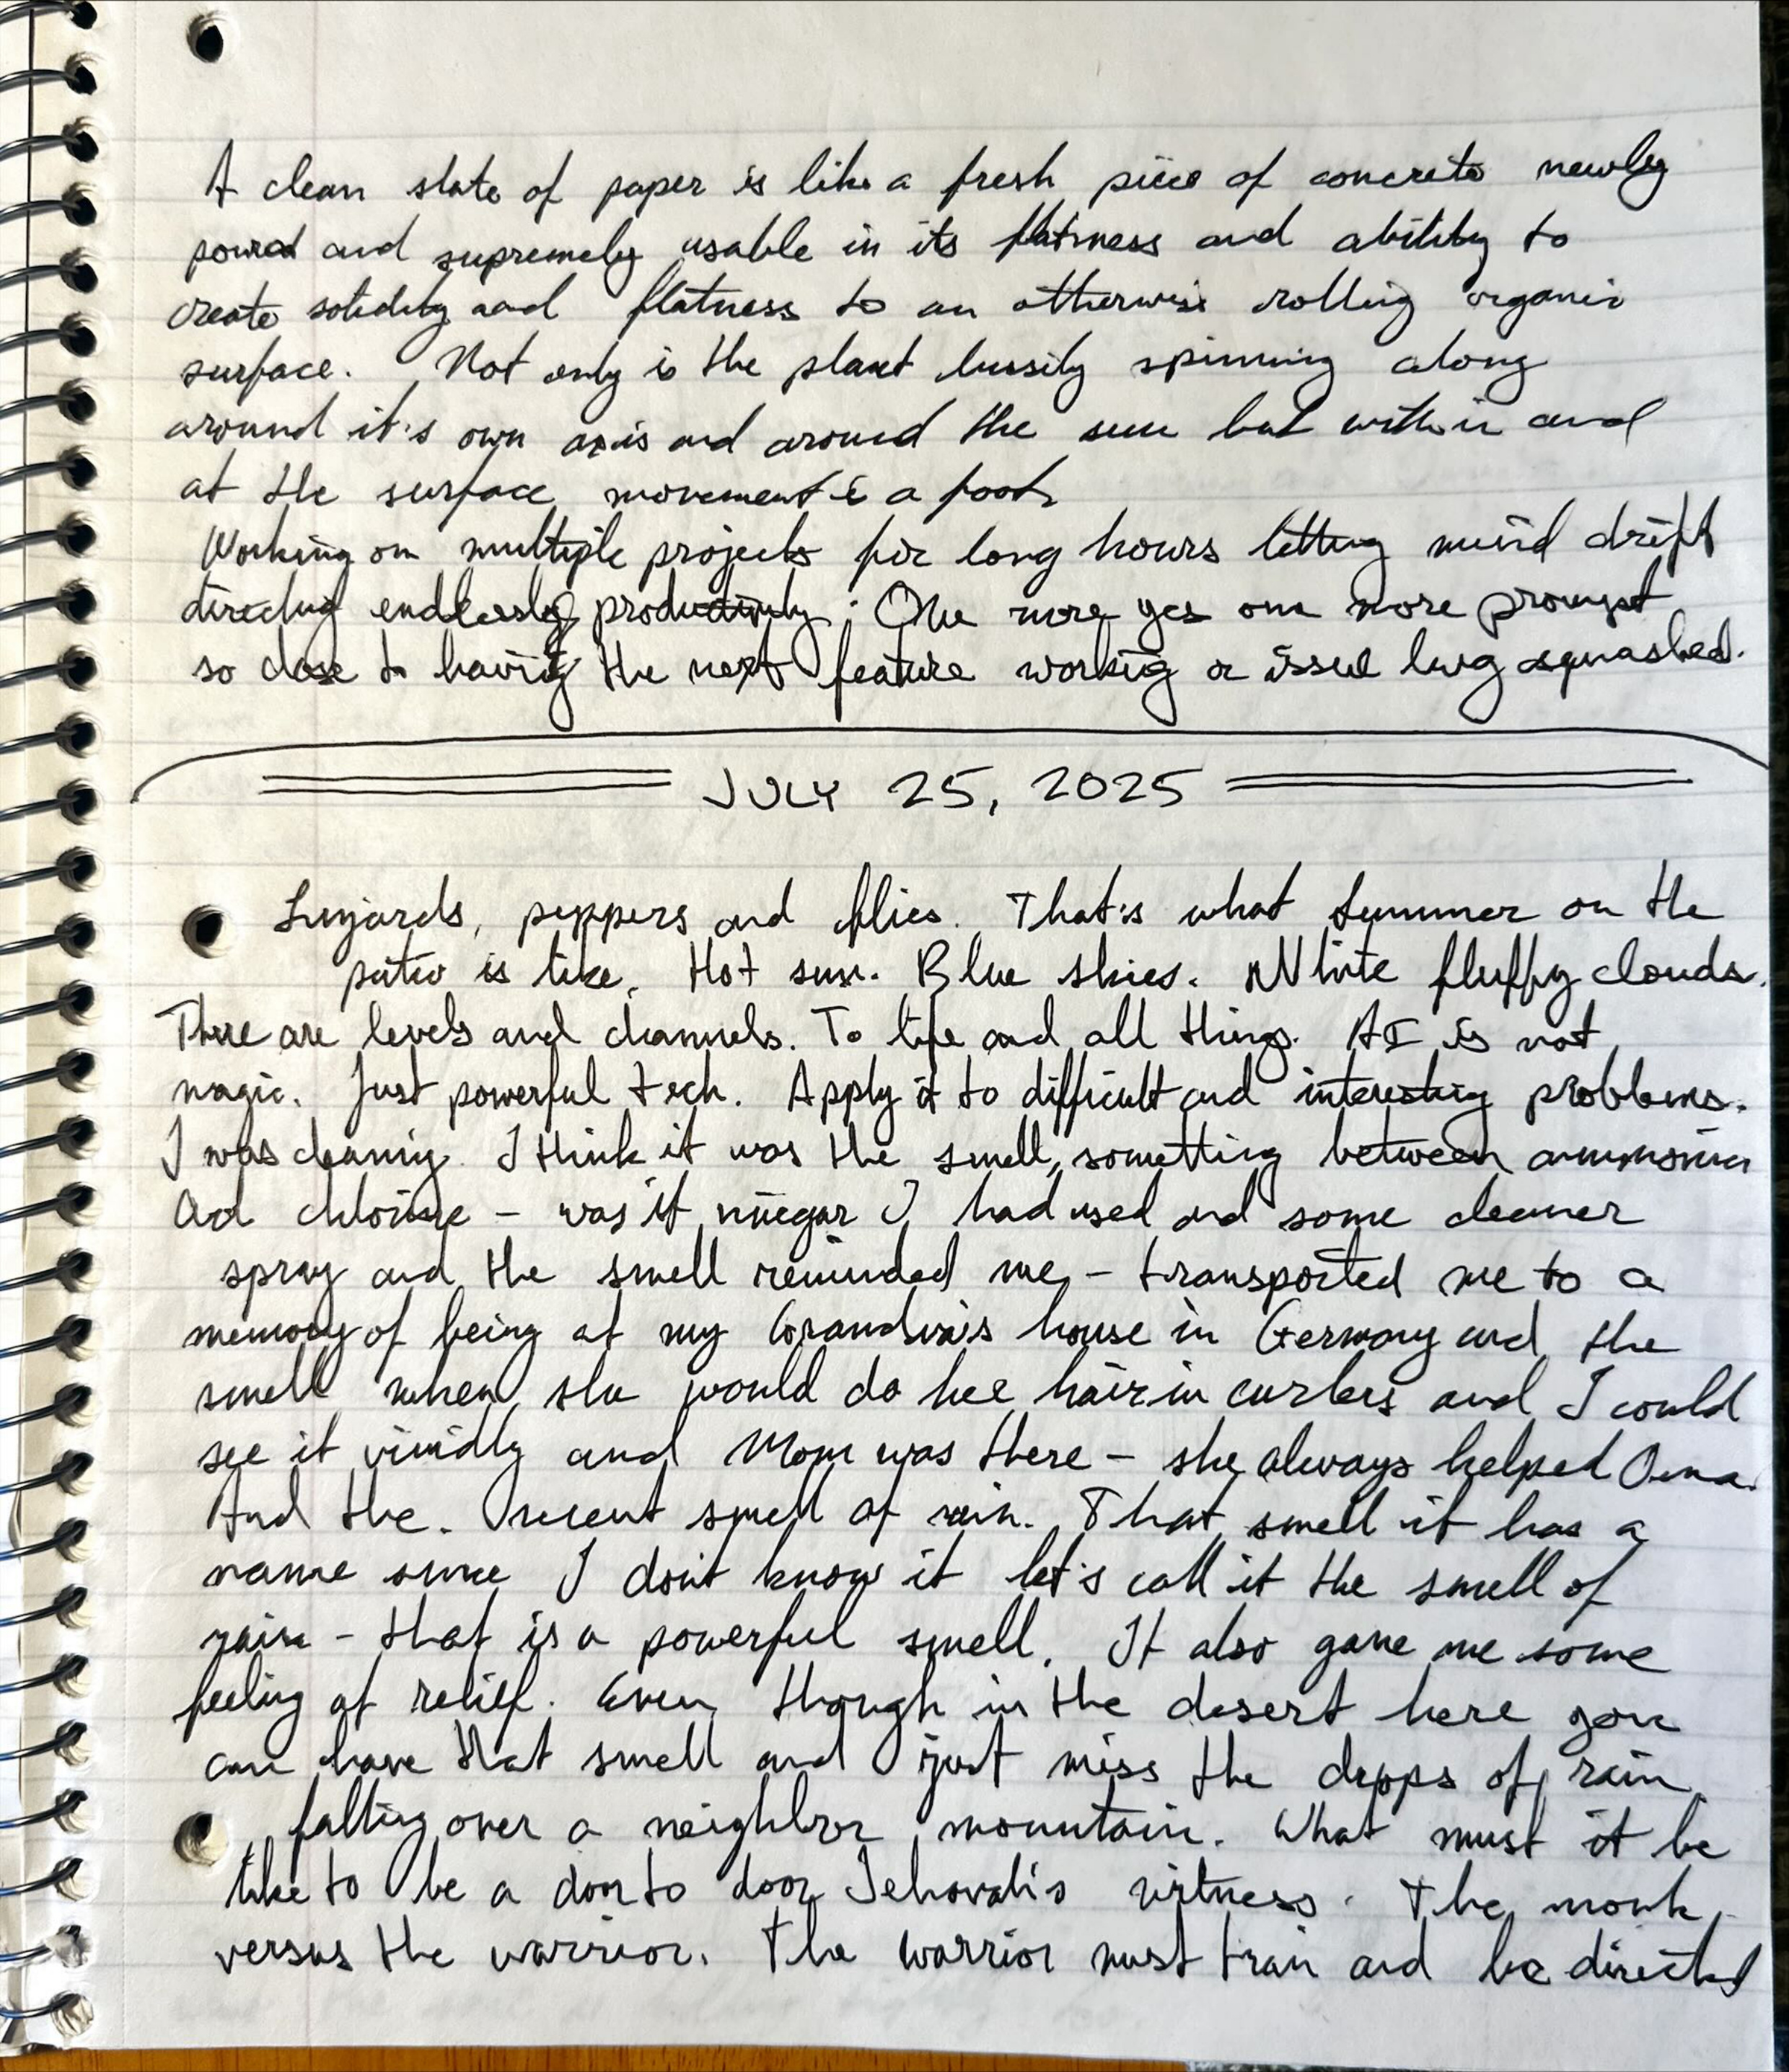 A clean slate of paper is like a fresh piece of concrete newly
poured and supremely usable in its flatness and ability to
create solidity and flatness to an otherwise rolling organic
surface. Not only is the planet busily spinning along
around it's own axis and around the sun but within and
at the surface movement is a foot.
Working on multiple projects for long hours letting mind drift
directing endlessly productively. One more yes one more prompt
so close to having the next feature working or issue bug squashed.
JULY 25, 2025
peppers and flies. That's what summer on the
patio is like. Hot sun. Blue skies. White fluffy clouds.
There are levels and channels. To life and all things. AI is not
magic. Just powerful tech. Apply it to difficult and interesting problems.
I was cleaning. I think it was the smell, something between ammonia
and chlorine - was it vinegar I had used and some cleaner
spray and the smell reminded me - transported me to a
memory of being at my Grandma's house in Germany and the
smell when she would do her hair in curlers and I could
see it vividly and Mom was there - she always helped Oma.
And the. recent smell of rain. That smell it has a
name since I don't know it let's call it the smell of
rain - that is a powerful smell. It also gave me some
feeling of relief. Even though in the desert here you
can have that smell and just miss the drops of rain
falling over a neighbor mountain. What must it be
like to be a door to door Jehovah's witness. The monk
versus the warrior. The warrior must train and be directed